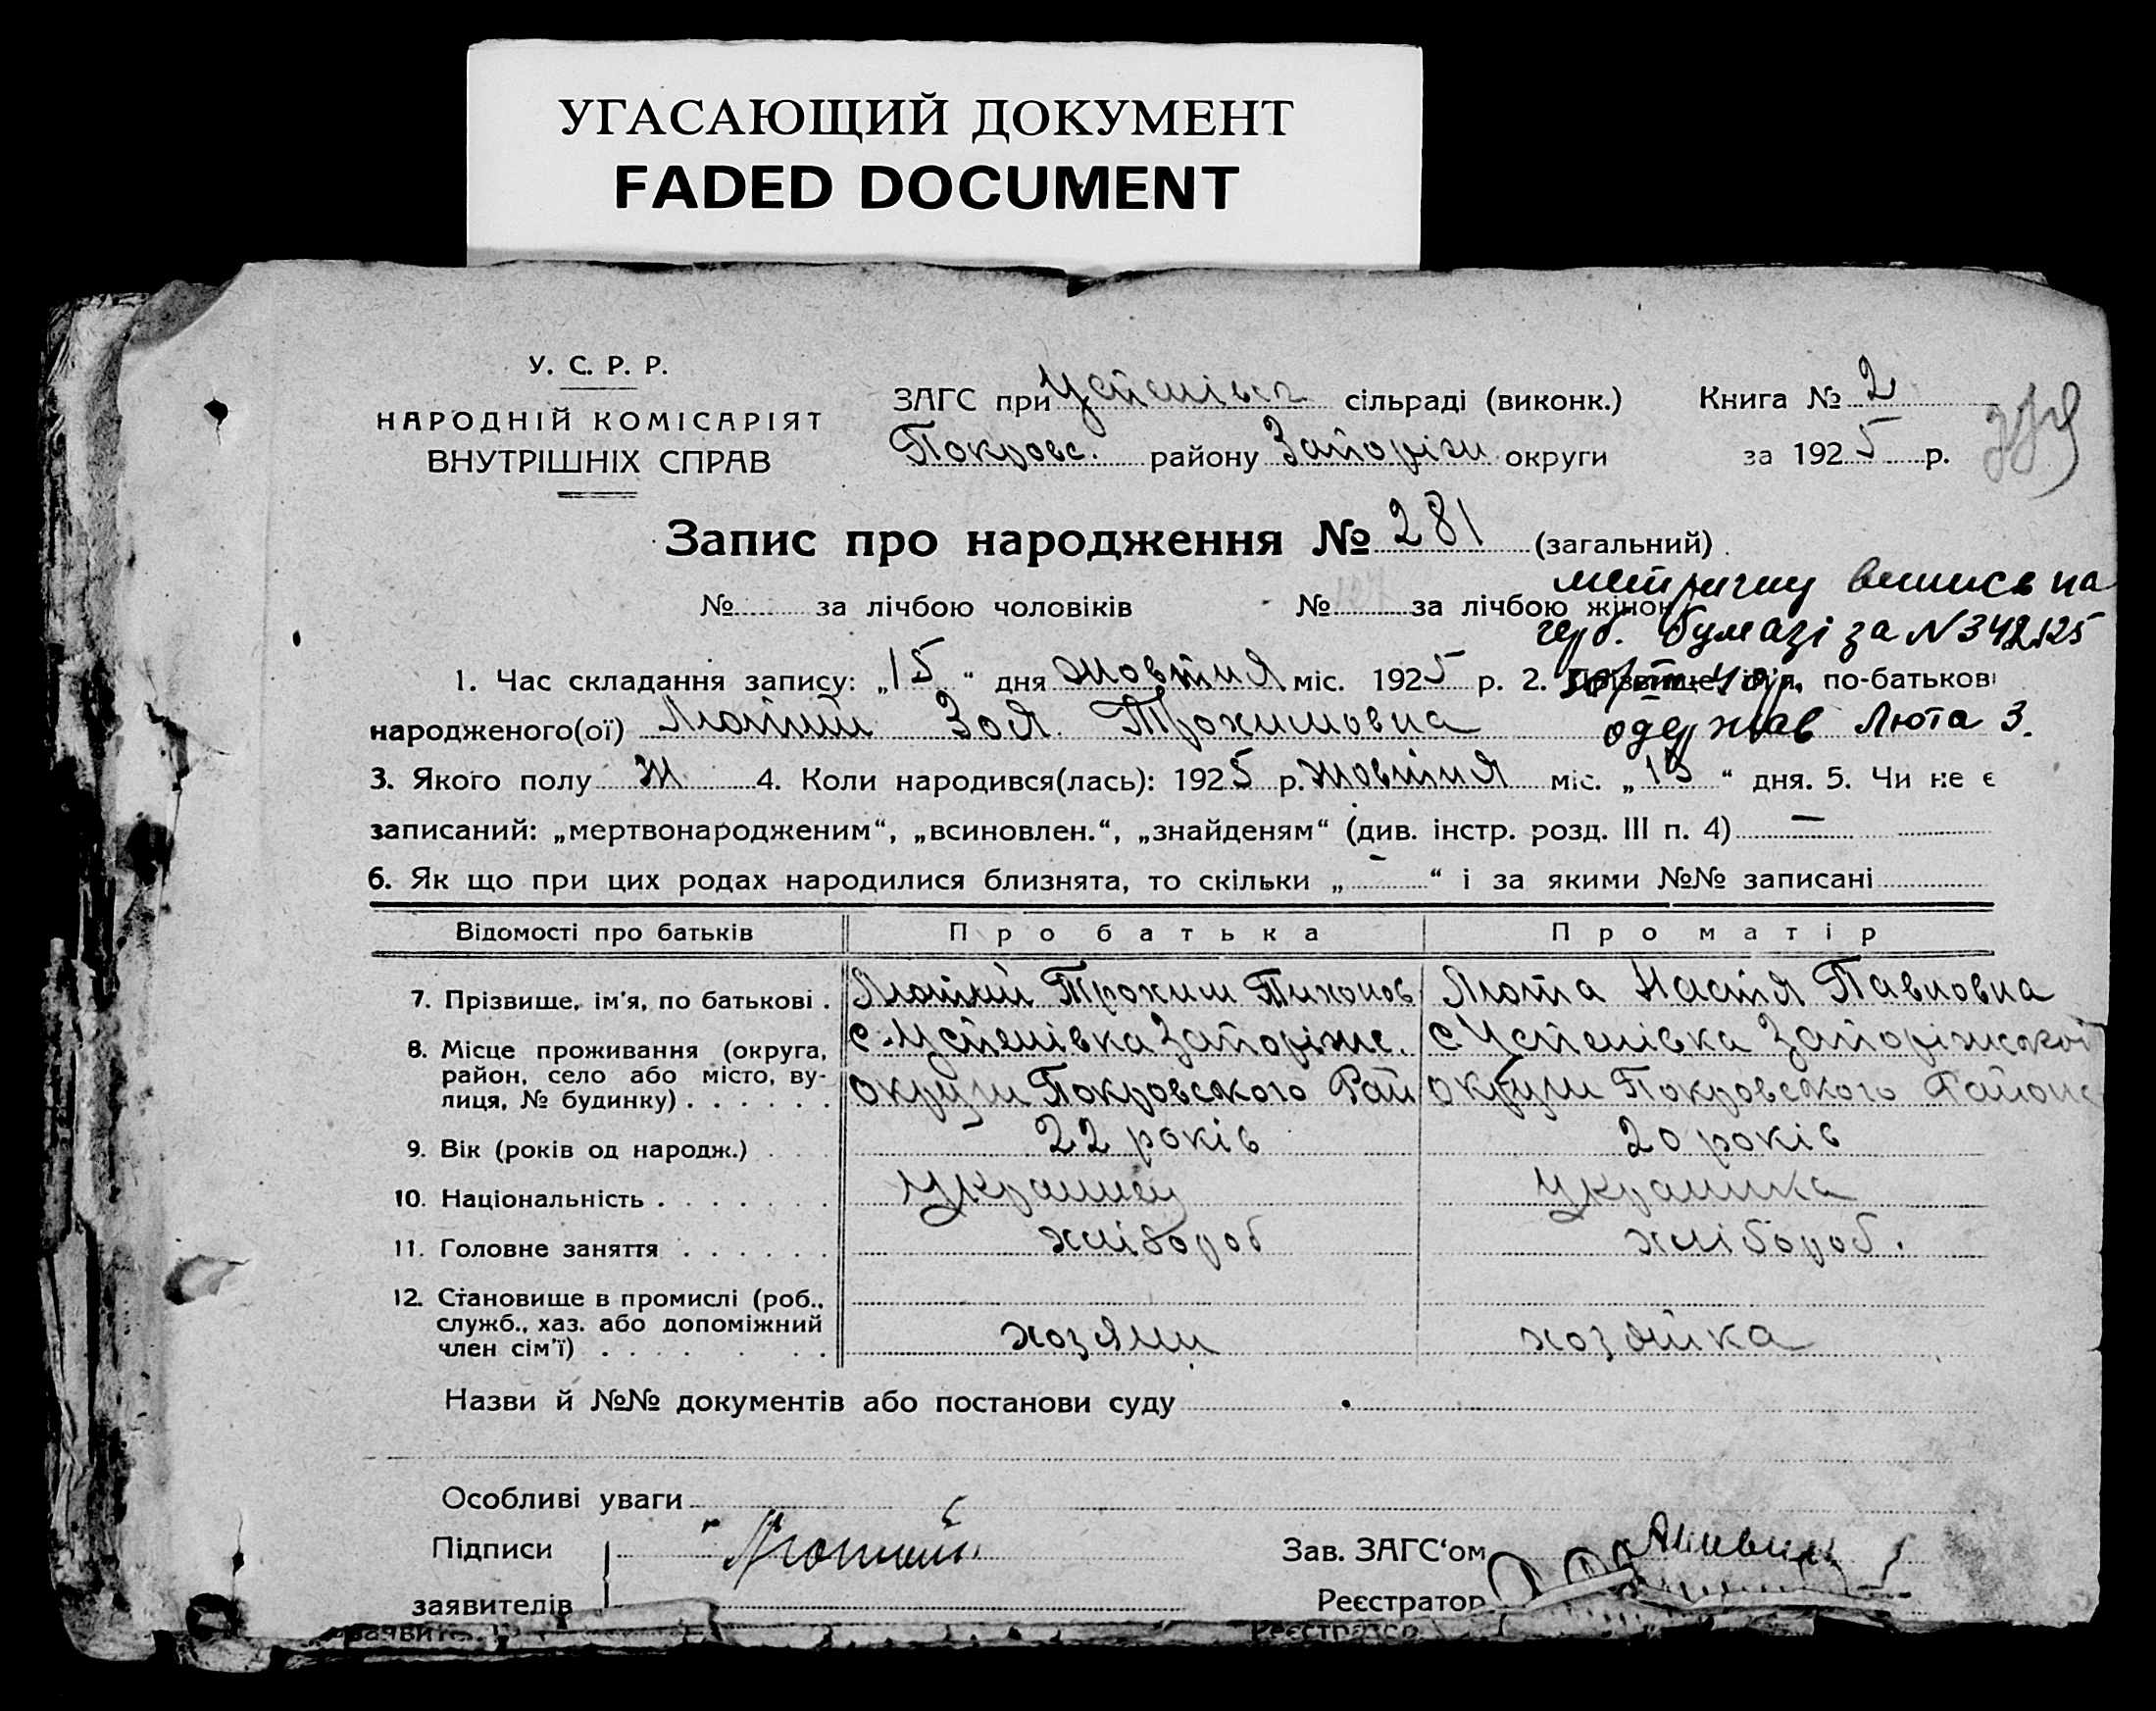 УГАСАЮЩИЙ ДОКУМЕНТ
FADED DOCUMENT
У. С. Р. Р.
НАРОДНІЙ КОМІСАРІЯТ
ВНУТРІШНІХ СПРАВ
ЗАГС при сільраді (виконк.)
Покровс. району Запоріж округи
Книга № 2
за 1925 р.
Запис про народження № 281 (загальний)
№ за лічбою чоловіків № за лічбою жінок
метричну випись на
герб. бумазі за N 342125
1. Час складання запису: „15“ дня жовтня міс. 1925 р. 2. Прізвище, ім'я, по-батькові
народженого(ої) Лютий Зоя Трохимовна
одержав Люта З.
3. Якого полу ж 4. Коли народився(лась): 1925 р. жовтня міс. „15“ дня. 5. Чи не є
записаний: „мертвонародженим“, „всиновлен.“, „знайденям“ (див. інстр. розд. III п. 4) —
6. Як що при цих родах народилися близнята, то скільки „-“ і за якими №№ записані
Відомості про батьків Про батька Про матір
7. Прізвище, ім'я, по батькові . Лютий Трохим Тихонов Люта Настя Павловна
8. Місце проживання (округа, район, село або місто, вулиця, № будинку) . . . . . .
с. Успенівка Запоріжс. с Успенівка Запоріжської
округи Покровського Рай округи Покровського Района
9. Вік (років од народж.) . . . 22 років 20 років
10. Національність . . . . . . . Украинец Украинка
11. Головне заняття . . . . . . хлібороб хлібороб.
12. Становище в промислі (роб.,
служб., хаз. або допоміжний
член сім'ї) . . . . . . . хозяин хозяйка
Назви й №№ документів або постанови суду
Особливі уваги
Підписи Лютий Зав. ЗАГС'ом
заявителів Реєстратор